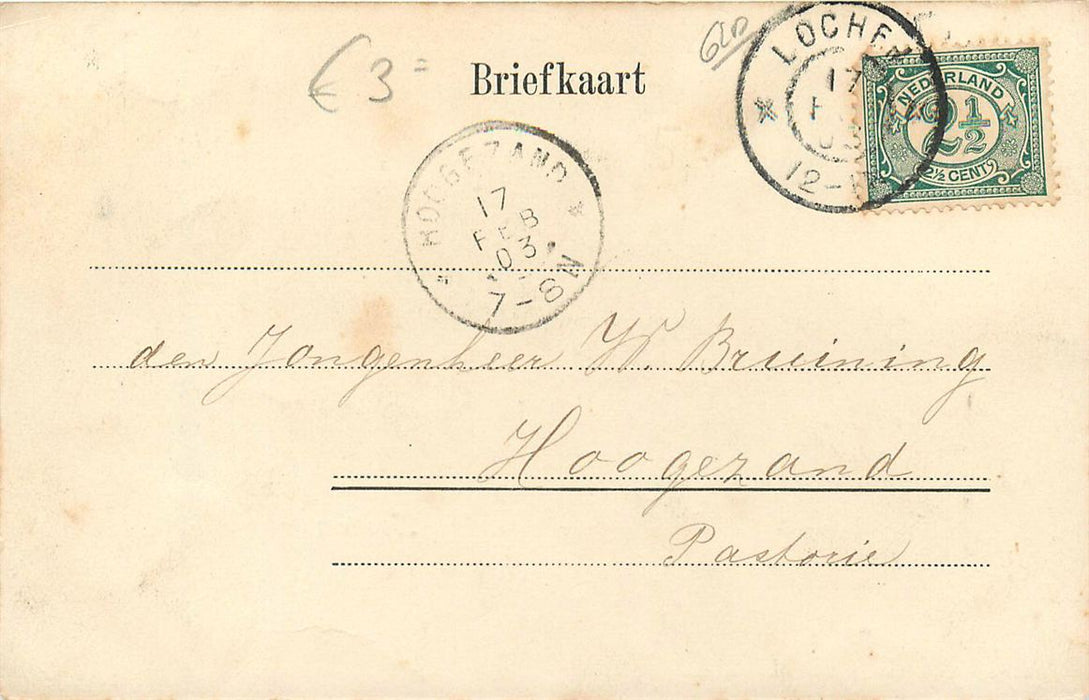 € 3 =
Briefkaart
LOCHEM
17
12-1
NEDERLAND
2½
2½ CENT
HOOGEZAND
17
FEB
03
7-8N
den Jongenheer W. Bruining
Hoogezand
Pastorie